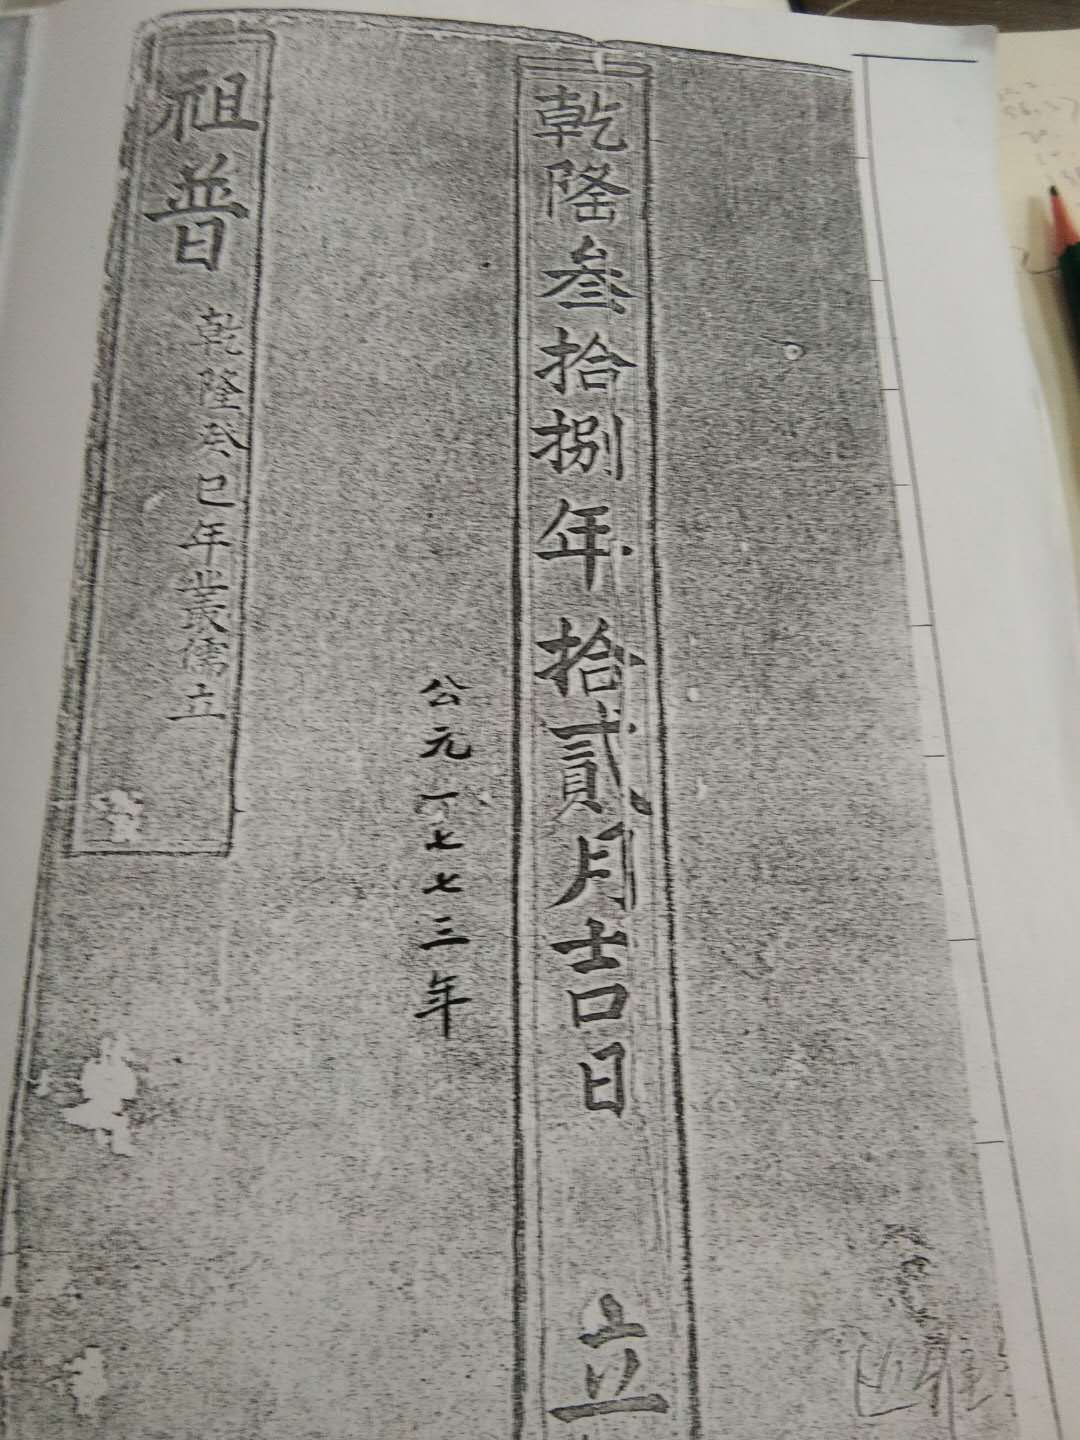 乾隆叁拾捌年拾貳月吉日 立
公元一七七三年
祖普
乾隆癸巳年儒立